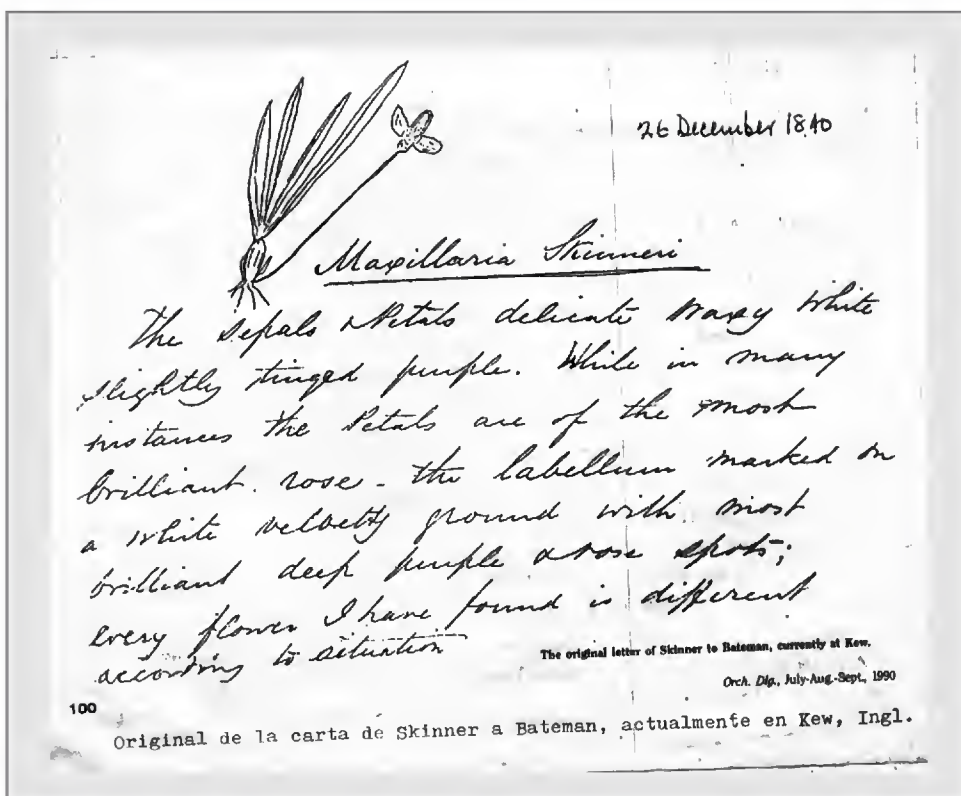 26 December 1840
Maxillaria Skinneri
The Sepals & Petals delicate waxy white
slightly tinged purple. While in many
instances the Petals are of the most
brilliant rose - the labellum marked on
a white velvetty ground with most
brilliant deep purple & rose spots;
every flower I have found is different
according to situation
The original letter of Skinner to Bateman, currently at Kew.
Orch. Dig., July-Aug.-Sept., 1990
100
Original de la carta de Skinner a Bateman, actualmente en Kew, Ingl.